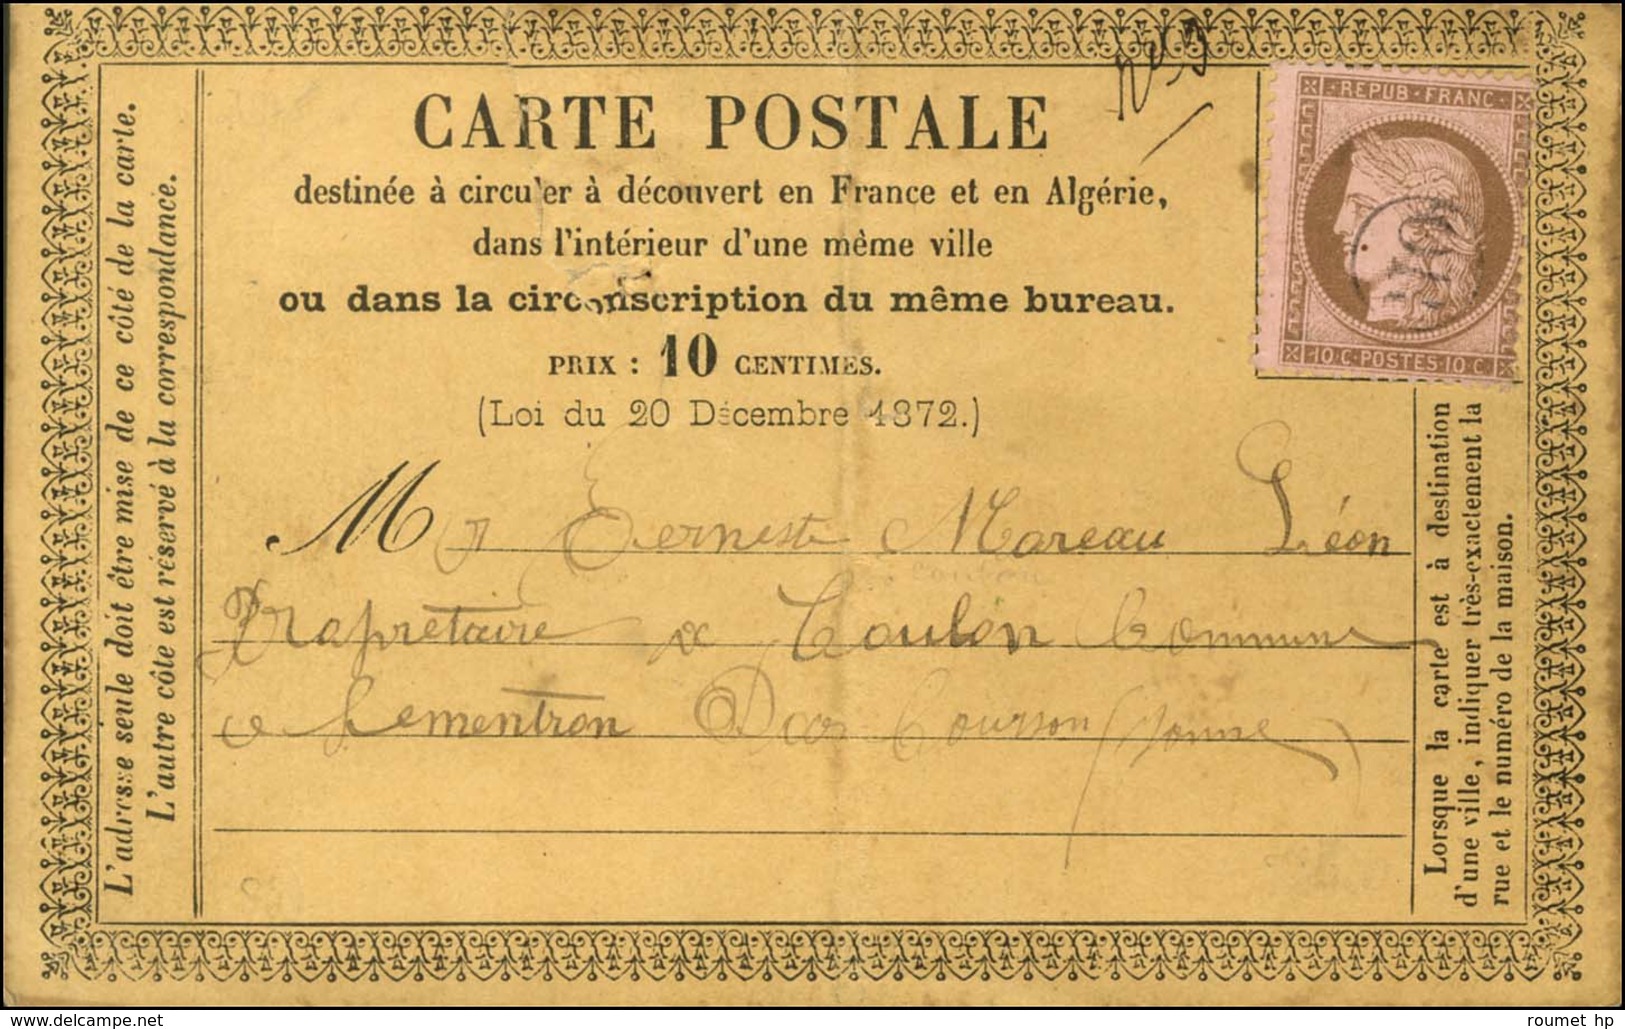 CARTE POSTALE
REPUB·FRANC
10·C·POSTES·10·C
destinée à circuler à découvert en France et en Algérie,
dans l'intérieur d'une même ville
ou dans la circonscription du même bureau.
PRIX : 10 CENTIMES.
(Loi du 20 Décembre 1872.)
M r Eernest Mareau Léon
Prapretaire Coulon Commune
Lementron Courson Yonne
L'adresse seule doit être mise de ce côté de la carte.
L'autre côte est réservé à la correspondance.
Lorsque la carte est à destination
d'une ville, indiquer très-exactement la
rue et le numéro de la maison.
www.delcampe.net
roumet hp